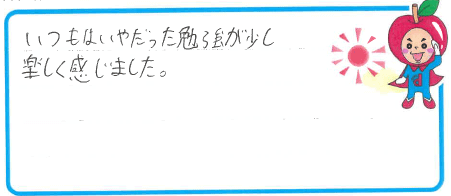 いつもはいやだった勉強が少し
楽しく感じました。